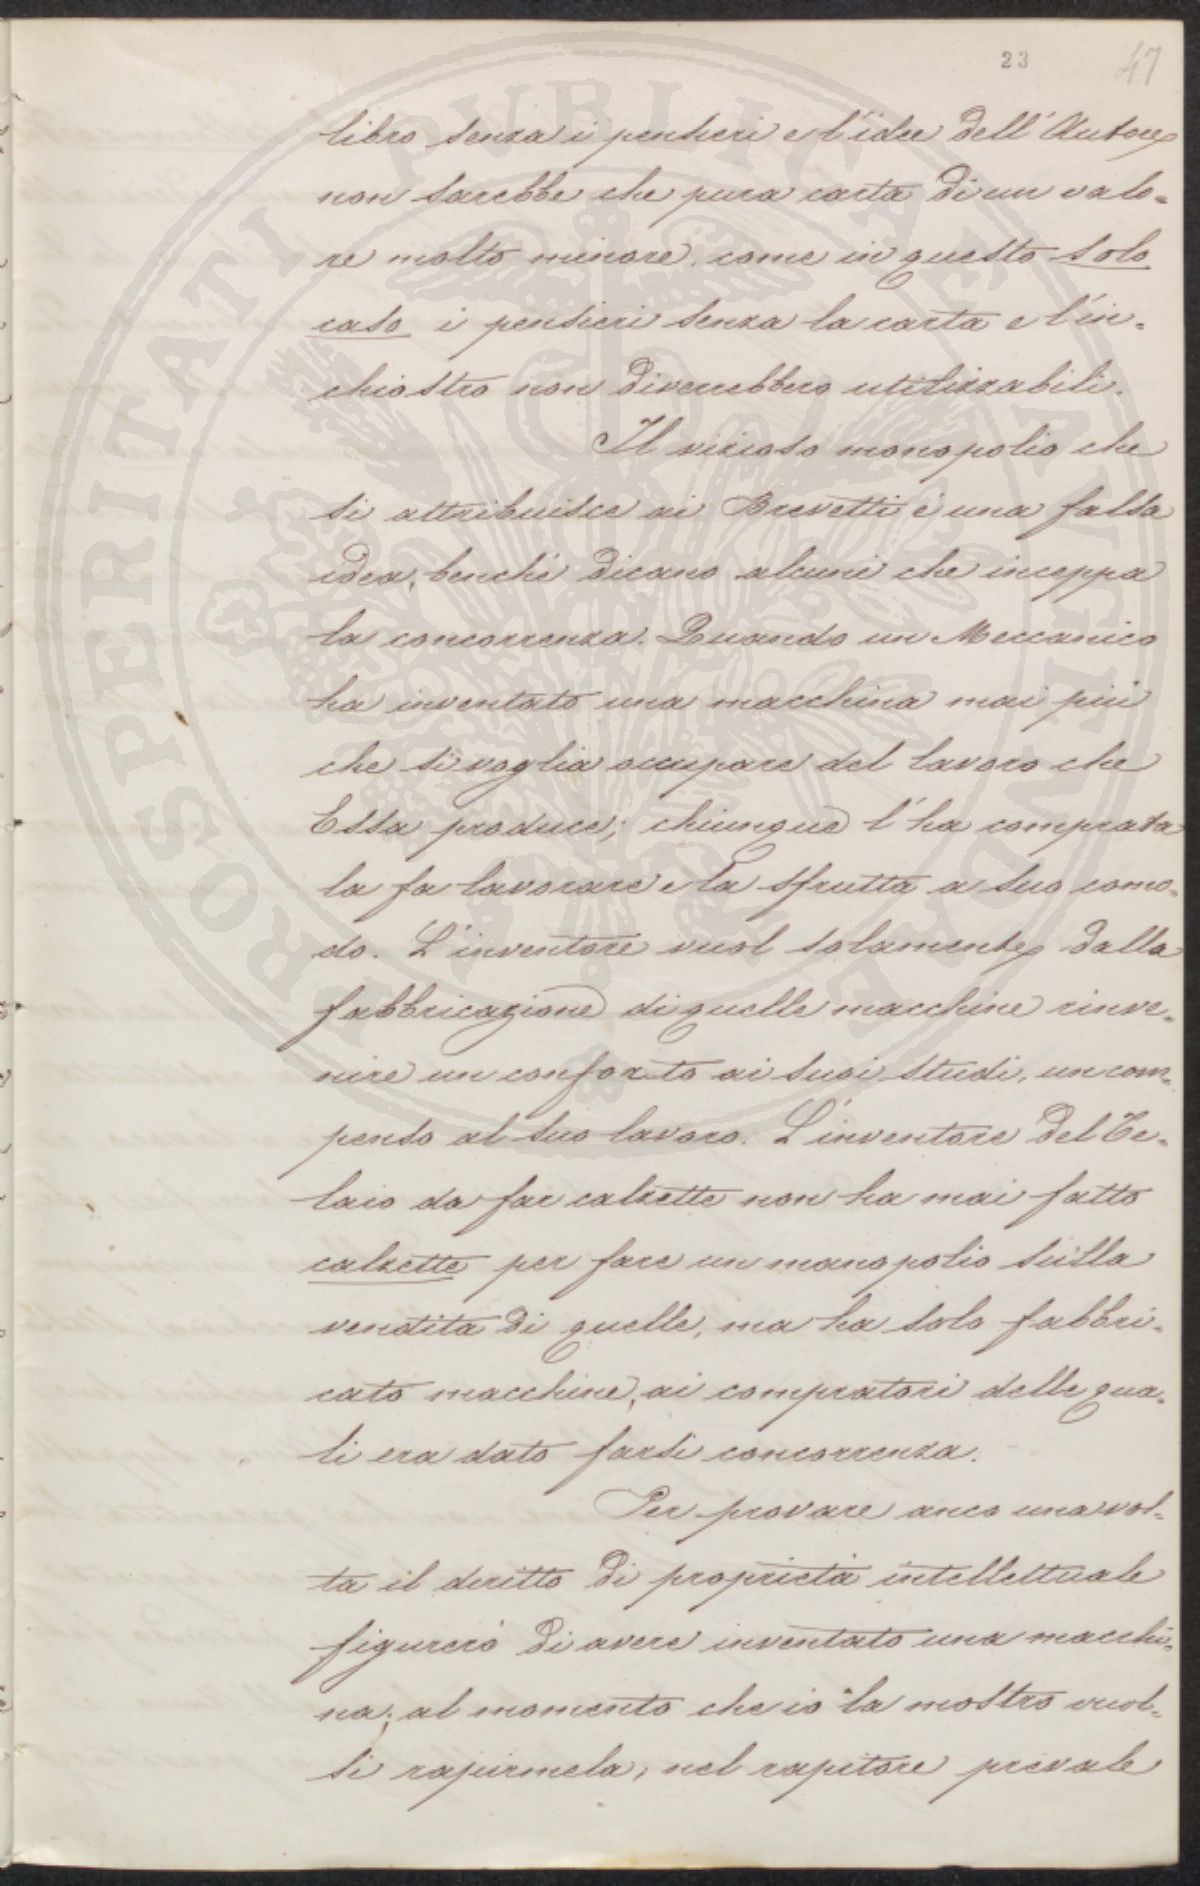 23
47
libro senza i pensieri e l'idee dell'Autore
non sarebbe che pura carta di un valo=
re molto minore, come in questo solo
caso i pensieri senza la carta e l'in=
chiostro non diverrebbero utilizzabili.
Il vizioso monopolio che
si attribuisce ai Brevetti è una falsa
idea, benchè dicano alcuni che inceppa
la concorrenza. Quando un Meccanico
ha inventato una macchina mai più
che si voglia occupare del lavoro che
Essa produce; chiunque l'ha comprata
la fa lavorare e la sfrutta a suo como=
do. L'inventore vuol solamente dalla
fabbricazione di quelle macchine rinve=
nire un conforto ai suoi studi, un com=
penso al suo lavoro. L'inventore del Te=
laio da far calzette non ha mai fatto
calzette per fare un monopolio sulla
vendita di quelle, ma ha solo fabbri=
cato macchine, ai compratori delle qua=
li era dato farsi concorrenza.
Per provare anco una vol=
ta il diritto di proprietà intellettuale
figurerò di avere inventato una macchi=
na; al momento che io la mostro vuol=
si rapirmela, nel rapitore prevale
PROSPERITATI PVBLICAE AVGENDAE